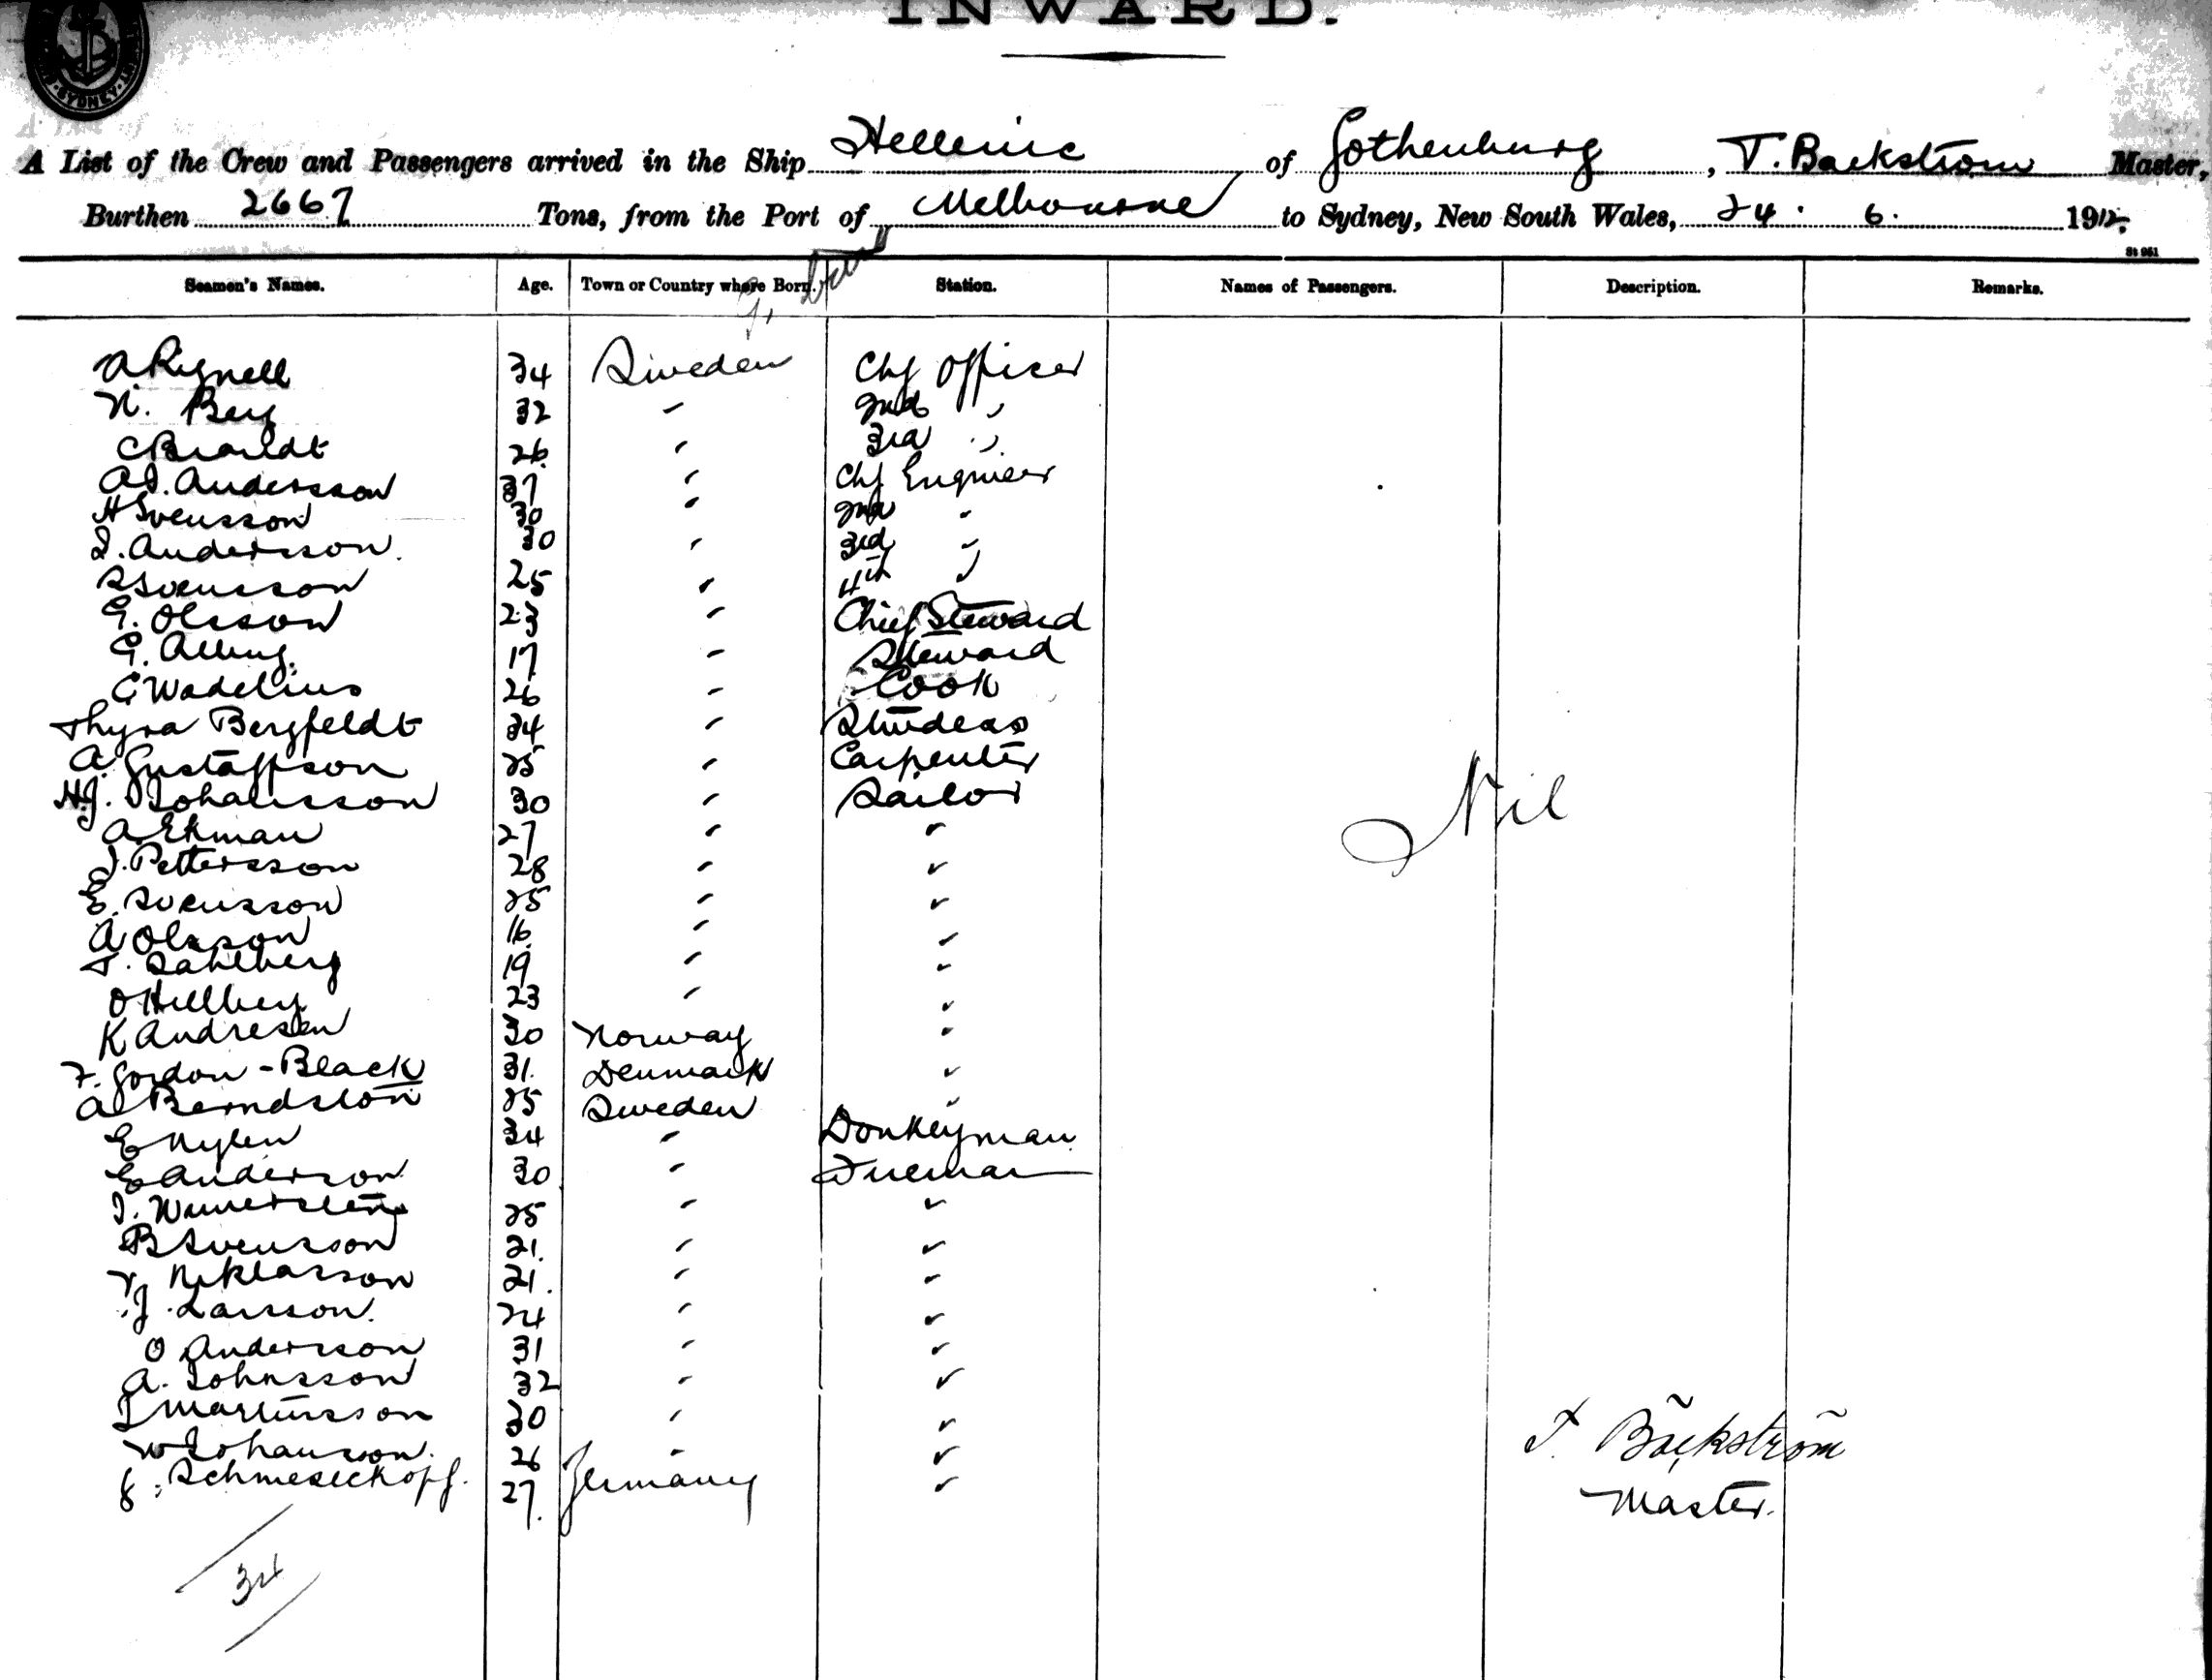 INWARD.
SYDNEY
A List of the Crew and Passengers arrived in the Ship Hellenic of Gothenburg, T. Backstrom Master,
Burthen 2667 Tons, from the Port of Melbourne to Sydney, New South Wales, 24. 6. 1912.
St 961
Seamen's Names. Age. Town or Country where Born. Station. Names of Passengers. Description. Remarks.
A Rignell 34 Sweden Chf Officer
N. Berg 32 " 2nd "
C Brandt 26 " 3rd "
A.I. Andersson 37 " Chf Engineer
H Svensson 30 " 2nd "
I. Andersson 30 " 3rd "
R Svensson 25 " 4th "
G. Olsson 23 " Chief Steward
G. 17 " Steward
C Wadelius 26 " Cook
Thyra Bergfeldt 34 "
A. Gustaffson 25 " Carpenter
H.J. Johansson 30 " Sailor
A Ekman 27 " "
J. Pettersson 28 " "
E. Svensson 25 " "
A Olsson 16 " "
T. Sahlberg 19 " "
O Hellberg 23 " "
K Andresen 30 Norway "
F. Gordon-Black 31. Denmark "
A Berndston 25 Sweden "
E Nylen 34 " Donkeyman
E Anderson 30 " Fireman
I. 25 " "
B Svensson 21. " "
Niklasson 21. " "
J. Larsson. 24 " "
O Andersson 31 " "
A. Johnsson 32 " "
I Martinsson 30 " "
W Johansson. 26 " "
Schmeseckopf. 27. Germany "
Nil
T. Bäckström
Master.
34